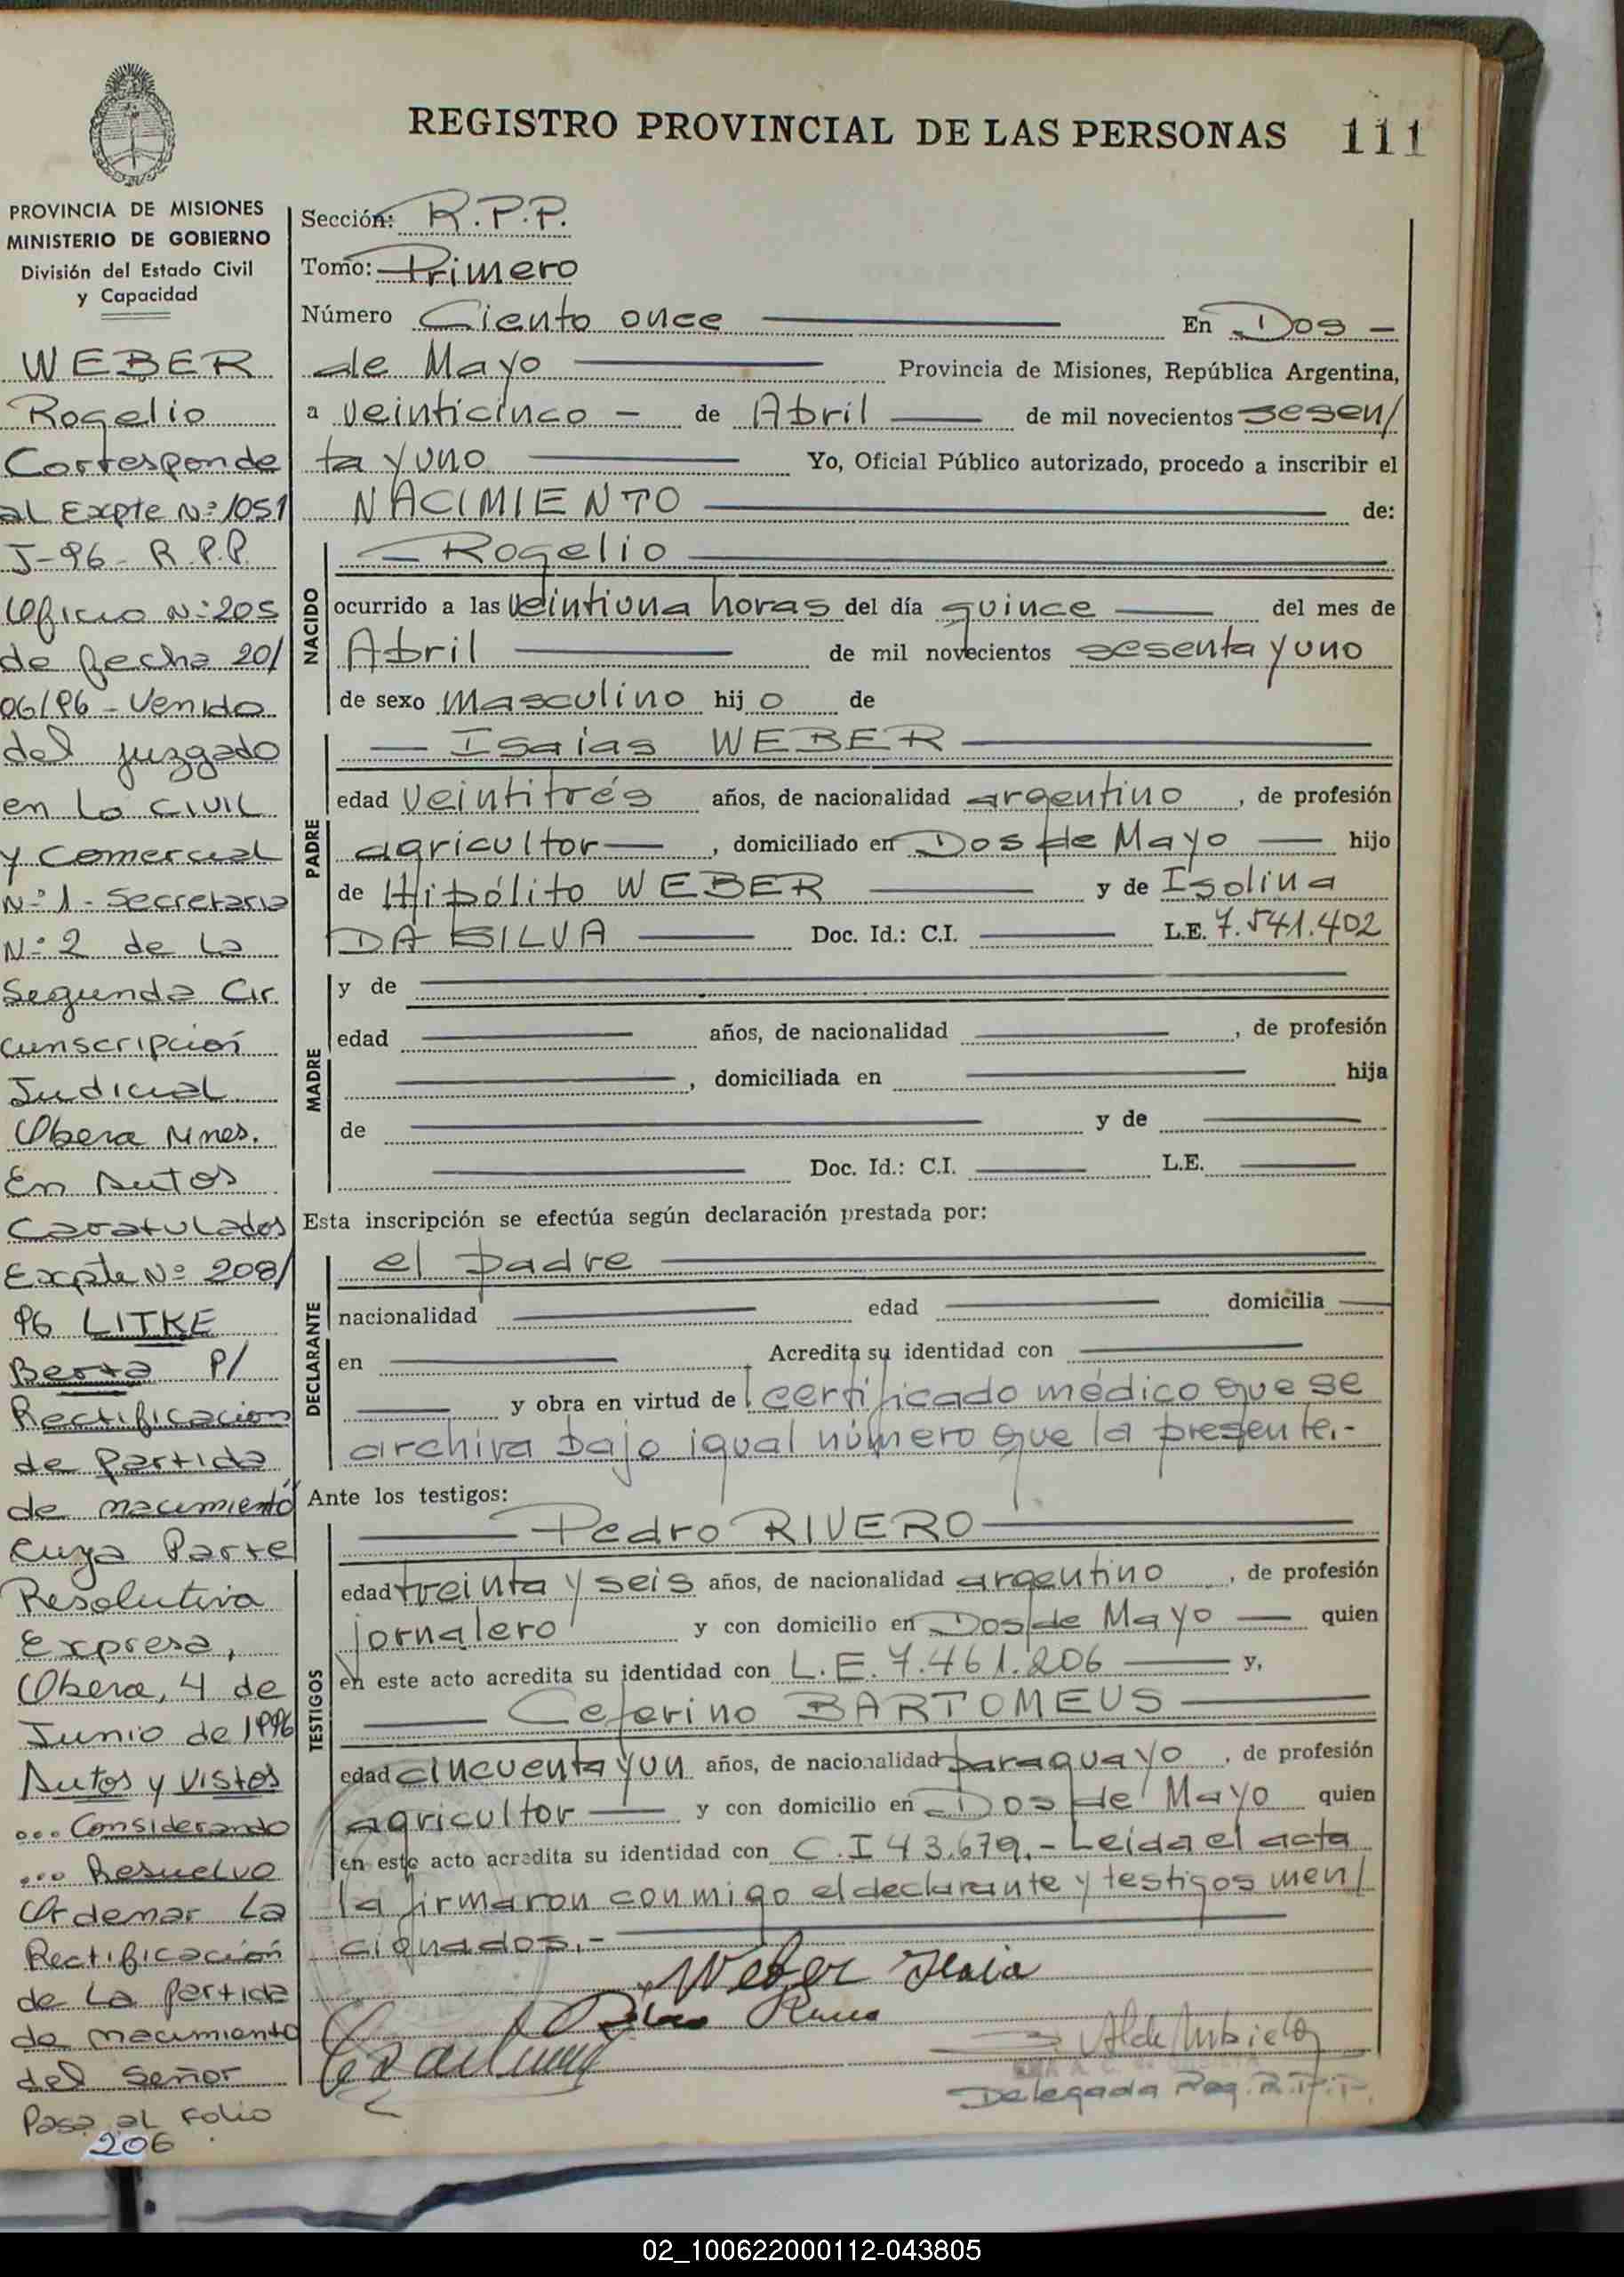 REGISTRO PROVINCIAL DE LAS PERSONAS 111
PROVINCIA DE MISIONES
MINISTERIO DE GOBIERNO
División del Estado Civil
y Capacidad
WEBER
Rogelio
Corresponde
al Expte Nº 1051
J-96- R.P.P.
Oficio Nº 205
de fecha 20/
06/96 - Venido
del juzgado
en Lo CIVIL
y Comercial
Nº 1 - Secretaria
Nº 2 de La
Segunda Cir
cunscripción
Judicial
Obera Mnes.
En Autos
Caratulados
Expte Nº 208/
96 LITKE
Berta P/
Rectificacion
de Partida
de nacimiento
cuya Parte
Resolutiva
Expresa,
Obera, 4 de
Junio de 1996
Autos y Vistos
... Considerando
... Resuelvo
Ordenar La
Rectificación
de La partida
de nacimiento
del Señor
Pasa al Folio
206
Sección: R.P.P.
Tomo: Primero
Número Ciento once En Dos -
de Mayo Provincia de Misiones, República Argentina,
a veinticinco - de Abril de mil novecientos sesen/
ta y uno Yo, Oficial Público autorizado, procedo a inscribir el
NACIMIENTO de:
NACIDO
Rogelio
ocurrido a las veintiuna horas del día quince del mes de
Abril de mil novecientos sesenta y uno
de sexo masculino hij o de
PADRE
Isaias WEBER
edad veintitrés años, de nacionalidad argentino, de profesión
agricultor, domiciliado en Dos de Mayo hijo
de Hipólito WEBER y de Isolina
DA SILVA Doc. Id.: C.I. L.E. 7.541.402
MADRE
y de
edad años, de nacionalidad , de profesión
, domiciliada en hija
de y de
Doc. Id.: C.I. L.E.
Esta inscripción se efectúa según declaración prestada por:
DECLARANTE
el padre
nacionalidad edad domicilia
en Acredita su identidad con
y obra en virtud del certificado médico que se
archiva bajo igual número que la presente.-
Ante los testigos:
TESTIGOS
Pedro RIVERO
edad treinta y seis años, de nacionalidad argentino, de profesión
jornalero y con domicilio en Dos de Mayo quien
en este acto acredita su identidad con L.E. 7.461.206 y,
Ceferino BARTOMEUS
edad cincuenta y un años, de nacionalidad paraguayo, de profesión
agricultor y con domicilio en Dos de Mayo quien
en este acto acredita su identidad con C.I 43.679.- Leída el acta
la firmaron conmigo el declarante y testigos men/
cionados.-
Weber Isaia
Delegada Reg. R.P.P.
02_100622000112-043805